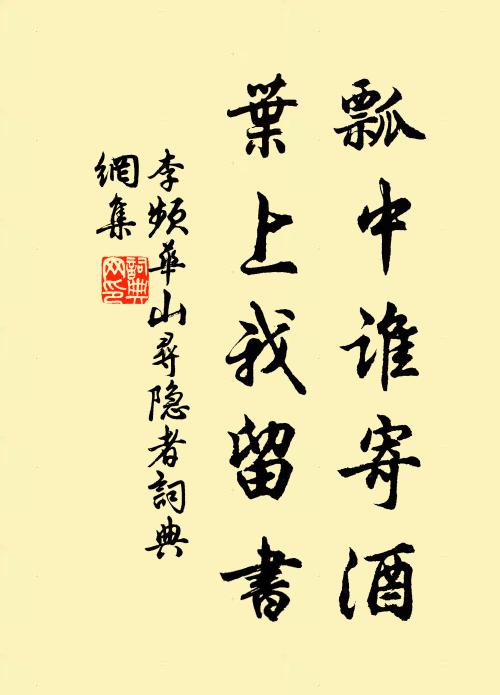 瓢中谁寄酒
葉上我留書
李频華山尋隐者詞典
網集
詞典網印